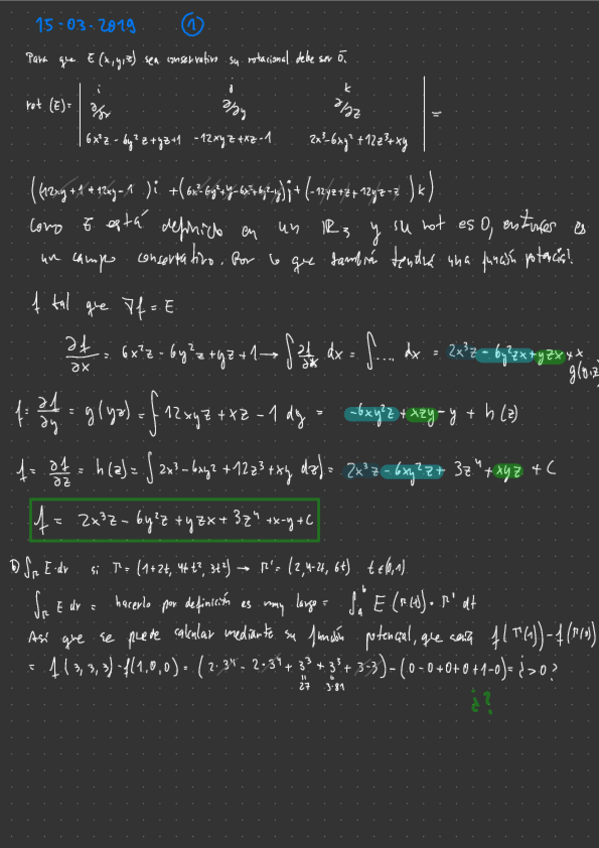 15-03-2019 ①
Para que E(x,y,z) sea conservativo su rotacional debe ser 0̄.
i j k
rot (E) = | ∂/∂x ∂/∂y ∂/∂z | =
6x²z - 6y²z + yz + 1 -12xyz + xz - 1 2x³ - 6xy² + 12z³ + xy
((12xy + 1 + 12xy - 1)i + (6x² - 6y² + y - 6x² + 6y² - y)j + (-12yz + z + 12yz - z)k)
Como E está definido en un ℝ₃ y su rot es 0, entonces es
un campo conservativo. Por lo que también tendrá una función potencial.
f tal que ∇f = E
∂f/∂x = 6x²z - 6y²z + yz + 1 → ∫ ∂f/∂x dx = ∫ .... dx = 2x³z - 6y²zx + yzx + x
g(y,z)
f = ∂f/∂y = g(yz) = ∫ 12xyz + xz - 1 dy = -6xy²z + xzy - y + h(z)
f = ∂f/∂z = h(z) = ∫ 2x³ - 6xy² + 12z³ + xy dz = 2x³z - 6xy²z + 3z⁴ + xyz + C
f = 2x³z - 6y²z + yzx + 3z⁴ + x - y + C
E·dr si = (1+2t, 4t t², 3t²) → ' = (2, 4-2t, 6t) t∈(0,1)
E dr = hacerlo por definición es muy largo = ∫ₐᵇ E(r(t))·r' dt
Así que se puede calcular mediante su función potencial, que sería f(r(1)) - f(r(0))
= f(3,3,3) - f(1,0,0) = (2·3⁴ - 2·3⁴ + 3³ + 3⁵ + 3-3) - (0-0+0+0+1-0) = ¿>0?
27 3·81
¿?